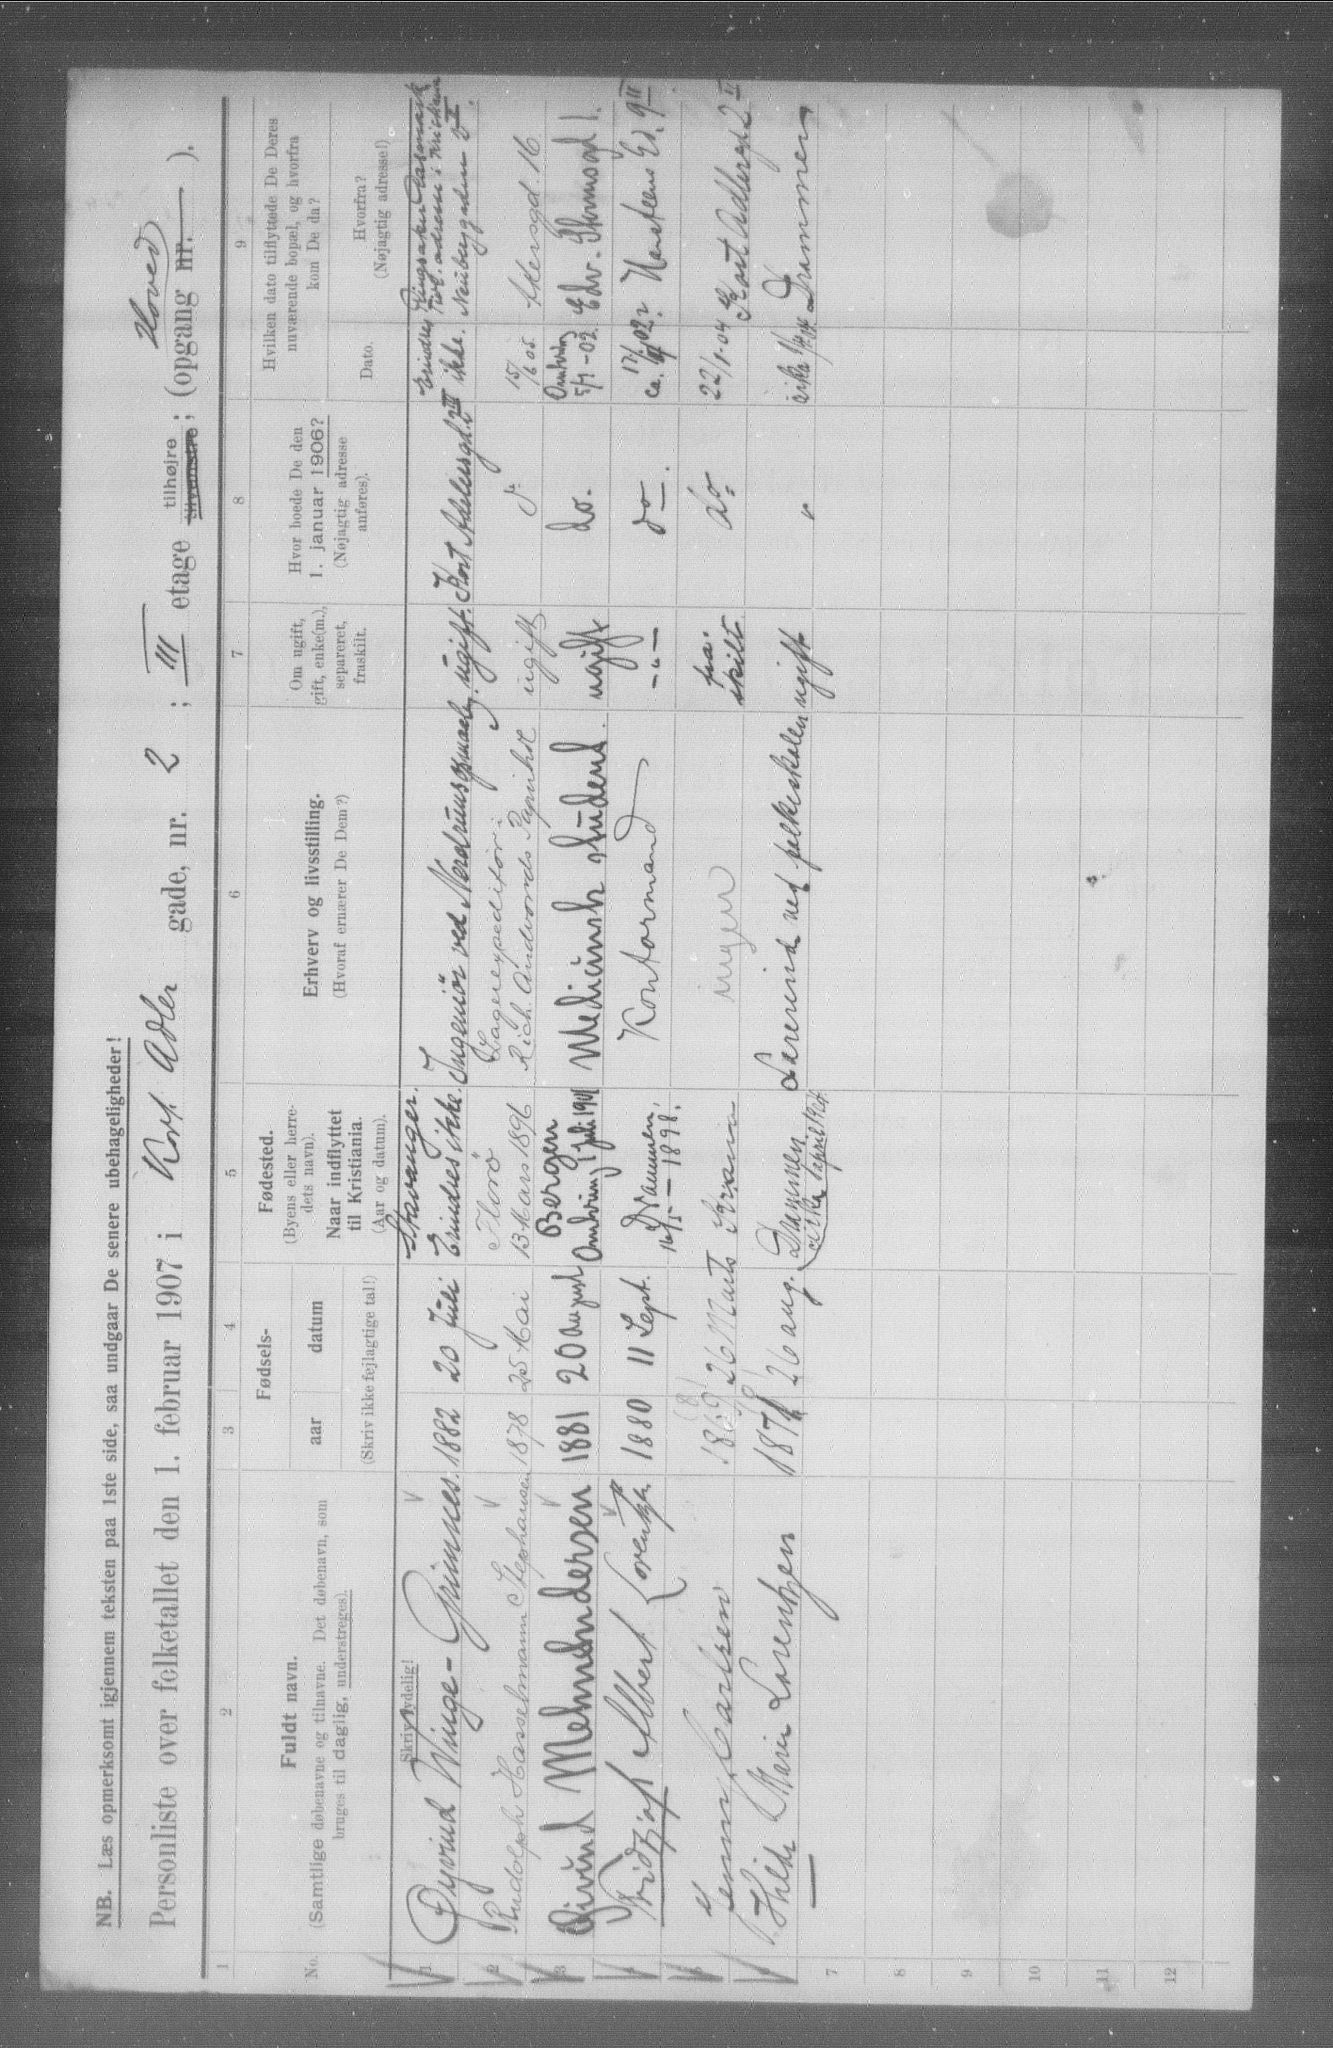 NB. Læs opmerksomt igjennem teksten paa 1ste side, saa undgaar De senere ubehageligheder!
Personliste over folketallet den 1. februar 1907 i Kort Adler gade, nr. 2 ; III etage tilhøjre tilvenstre ; (opgang nr. Hoved ).
1 2 3 4 5 6 7 8 9
No.
Fuldt navn.
(Samtlige døbenavne og tilnavne. Det døbenavn, som
bruges til daglig, understreges).
Skriv tydelig!
Fødsels-
aar datum
(Skriv ikke fejlagtige tal!)
Fødested.
(Byens eller herre-
dets navn).
Naar indflyttet
til Kristiania.
(Aar og datum).
Erhverv og livsstilling.
(Hvoraf ernærer De Dem?)
Om ugift,
gift, enke(m.),
separeret,
fraskilt.
Hvor boede De den
1. januar 1906?
(Nøjagtig adresse
anføres).
Hvilken dato tilflyttede De Deres
nuværende bopæl, og hvorfra
kom De da?
Dato.
Hvorfra?
(Nøjagtig adresse!)
1 Øyvind Winge-Grimnes. 1882 20 Juli Stavanger. Erindres ikke. Ingeniør ved ugift. Kort Adelersgd. 2 III Erindres ikke.
2 Rudolph Hasselmann Stephansen 1878 25 Mai Florø 13 Mars 1896 Lagerexpeditør i Rich. Andvords Papirhdl ugift 15/6 05 Akersgd. 16
3 Eivind Mehn-Andersen 1881 20 august Bergen Omkring 1 juli 1901 Medicinsk student. ugift do. Omkring 5/1-02. Edv. Stormsgd 1.
4 Fridtjof Albert Lorentzen 1880 11 Sept. Drammen, 16/5 - 1898. Kontormand -"- do. ca. 02. Hansteens Gd. 9 II
5 Jenny Carlsen 26 Marts Krania ingen fra-skilt do. 22/1-04 Kort Adlergd 2 II
6 Hilda Marie Lorentzen 26 aug. Drammen cirka april Lærerinde ved folkeskolen ugift " cirka Drammen
7
8
9
10
11
12